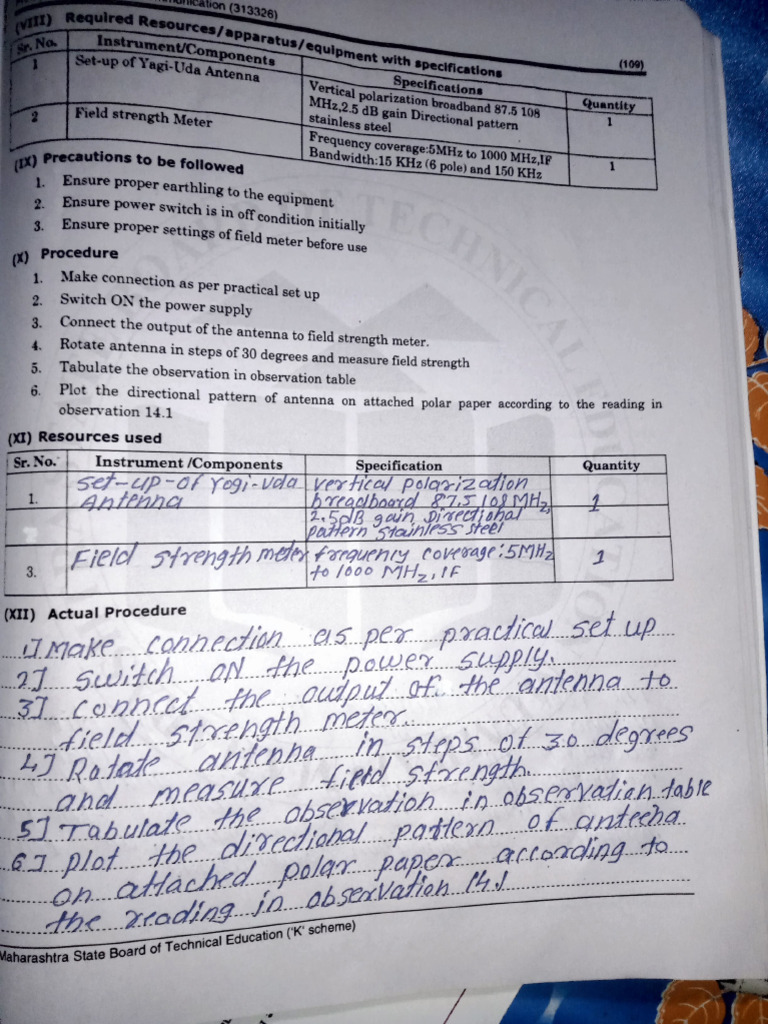 nication (313326)
(VIII) Required Resources/apparatus/equipment with specifications
(109)
Sr. No. Instrument/Components Specifications Quantity
1 Set-up of Yagi-Uda Antenna Vertical polarization broadband 87.5 108
MHz,2.5 dB gain Directional pattern
stainless steel 1
2 Field strength Meter Frequency coverage:5MHz to 1000 MHz,IF
Bandwidth:15 KHz (6 pole) and 150 KHz 1
(IX) Precautions to be followed
1. Ensure proper earthling to the equipment
2. Ensure power switch is in off condition initially
3. Ensure proper settings of field meter before use
(X) Procedure
1. Make connection as per practical set up
2. Switch ON the power supply
3. Connect the output of the antenna to field strength meter.
4. Rotate antenna in steps of 30 degrees and measure field strength
5. Tabulate the observation in observation table
6. Plot the directional pattern of antenna on attached polar paper according to the reading in
observation 14.1
(XI) Resources used
Sr. No. Instrument /Components Specification Quantity
1. Set-up-of Yogi-Uda vertical polarization
Antenna breadboard 87.5 108 MHz, 1
2.5dB gain Directional
pattern stainless steel
3. Field strength meter frequency coverage:5MHz 1
to 1000 MHz, IF
(XII) Actual Procedure
1] Make connection as per practical set up
2] Switch ON the power supply.
3] Connect the output of the antenna to
field strength meter.
4] Rotate antenna in steps of 30 degrees
and measure field strength.
5] Tabulate the observation in observation table
6] plot the directional pattern of anteeha
on attached polar paper according to
the reading in observation 14.1
Maharashtra State Board of Technical Education ('K' scheme)